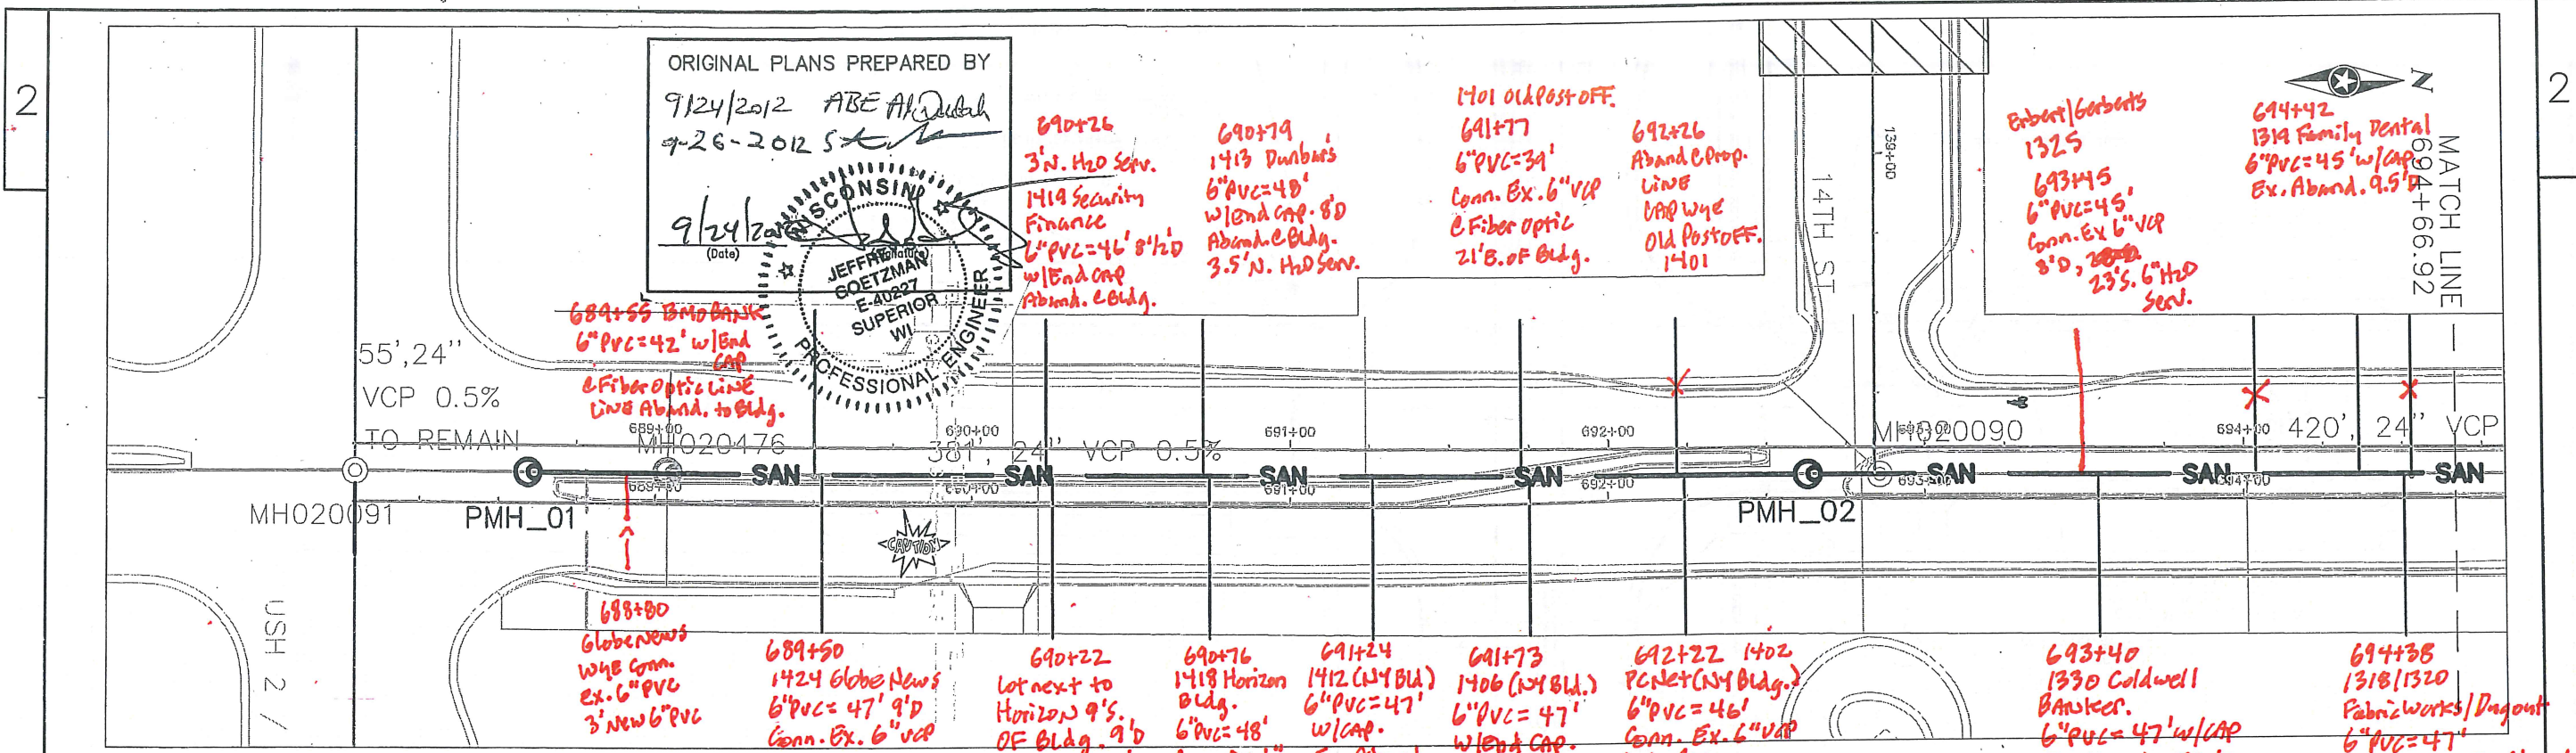 2
2
ORIGINAL PLANS PREPARED BY
9/24/2012 ABE
9-26-2012
9/24/20
(Date)
WISCONSIN
JEFFREY
GOETZMAN
E-40227
SUPERIOR
WI
PROFESSIONAL ENGINEER
690+26
3'N. H2O Serv.
1419 Security
Finance
6"PVC=46' 8 1/2'D
w/End CAP
Aband. @ Bldg.
690+79
1413 Dunbar's
6"PVC=48'
w/End CAP. 8'D
Aband. @ Bldg.
3.5'N. H2O Serv.
1401 Old Post OFF.
691+77
6"PVC=39'
Conn. Ex. 6" VCP
@ Fiber Optic
21'E. of Bldg.
692+26
Aband @ Prop.
LINE
CAP Wye
Old Post OFF.
1401
139+00
14TH ST
Erbert/Gerberts
1325
693+45
6"PVC=45'
Conn. Ex 6" VCP
8'D,
23'S. 6" H2O
Serv.
694+42
1319 Family Dental
6"PVC=45' w/CAP
Ex. Aband. 9.5'D
N
MATCH LINE
694+66.92
689+55 BMO BANK
6"PVC=42' w/End
CAP
@ Fiber Optic LINE
LINE Aband. to Bldg.
55',24"
VCP 0.5%
TO REMAIN
689+00
MH020476
690+00
381', 24" VCP 0.5%
691+00
692+00
693+00
MH020090
694+00
420', 24" VCP
SAN
SAN
SAN
SAN
SAN
SAN
SAN
689+00
690+00
691+00
692+00
693+00
694+00
MH020091
PMH_01
PMH_02
CAUTION
USH 2 /
688+80
Globe News
Wye Conn.
ex. 6" PVC
3' New 6" PVC
689+50
1424 Globe News
6"PVC= 47' 9'D
Conn. Ex. 6" VCP
690+22
Lot next to
Horizon 9'S.
OF Bldg. 9'D
690+76
1418 Horizon
Bldg.
6"PVC=48'
691+24
1412 (NY Bld.)
6"PVC=47'
w/CAP.
691+73
1406 (NY Bld.)
6"PVC= 47'
w/End CAP.
692+22 1402
PCNet (NY Bldg.)
6"PVC=46'
Conn. Ex. 6" VCP
693+40
1330 Coldwell
Banker.
6"PVC= 47' w/CAP
694+38
1318/1320
Fabric Works/Dugout
6"PVC=47'